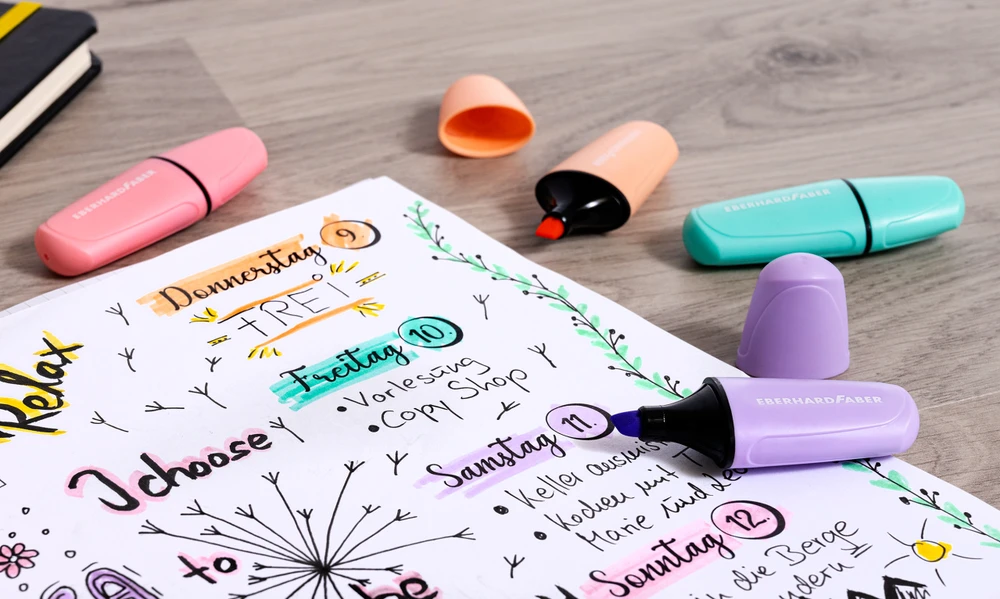 EBERHARDFABER
EBERHARDFABER
Donnerstag 9.
FREI
Freitag 10.
• Vorlesung
• Copy Shop
Relax
I choose
to
be
EBERHARDFABER
Samstag 11.
• Keller
• Kochen mit
Marie und
Sonntag 12.
die Berge